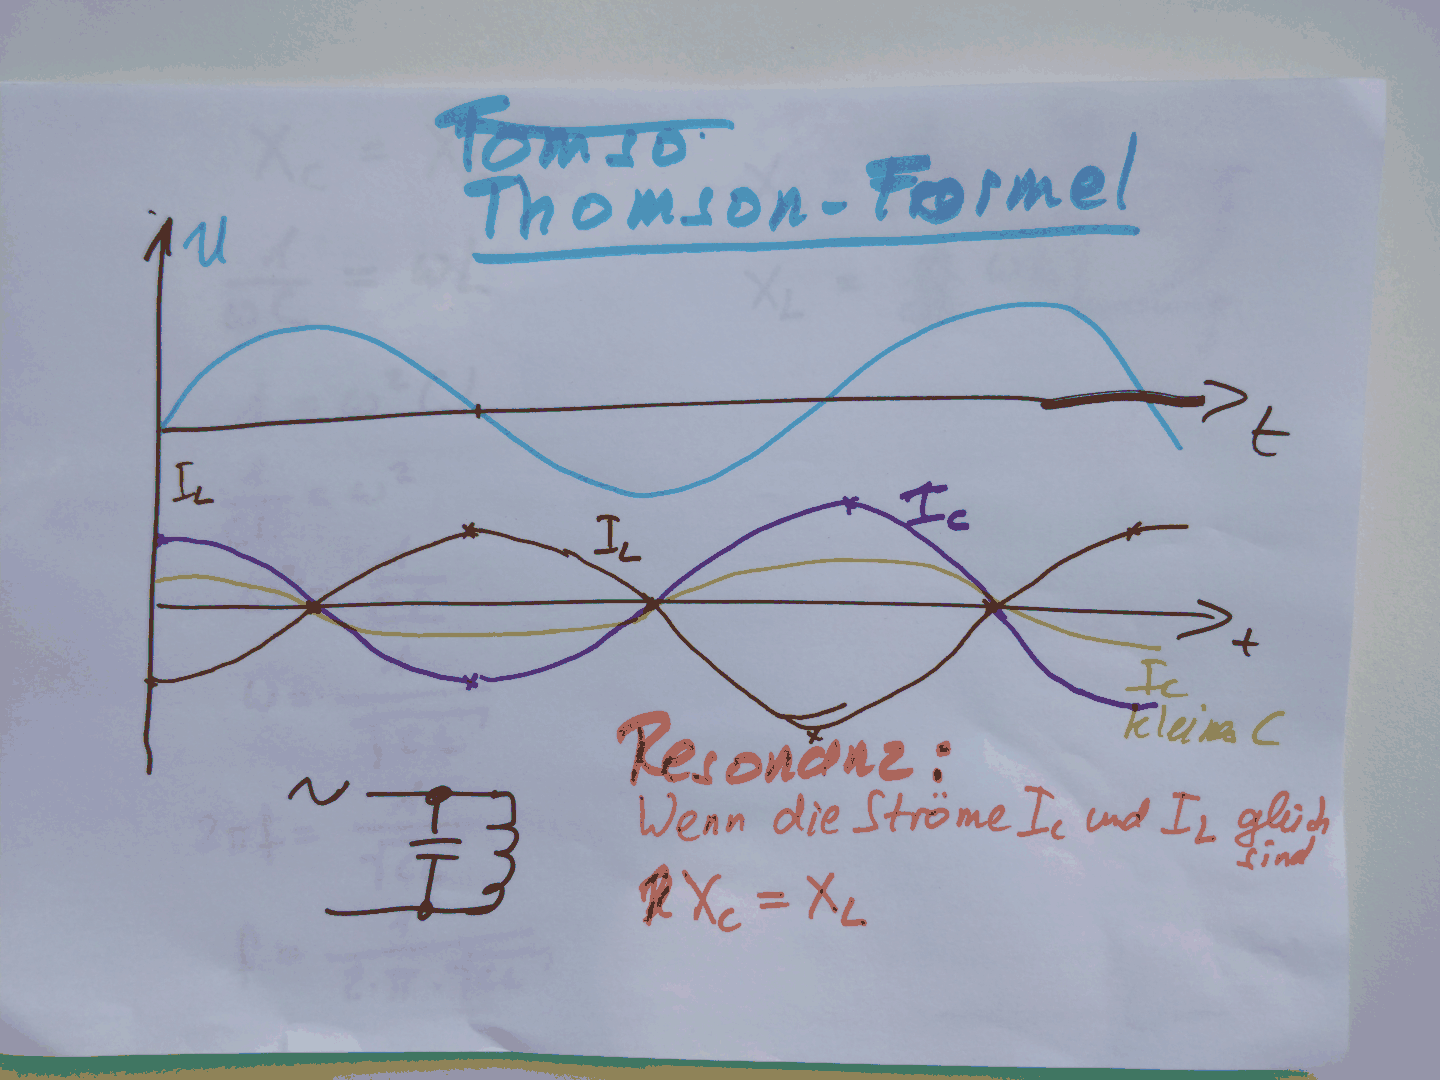 Tomso
Thomson-Formel
U
t
I_L
I_L
I_C
t
I_C
kleines C
Resonanz:
Wenn die Ströme I_C und I_L gleich
sind
X_C = X_L